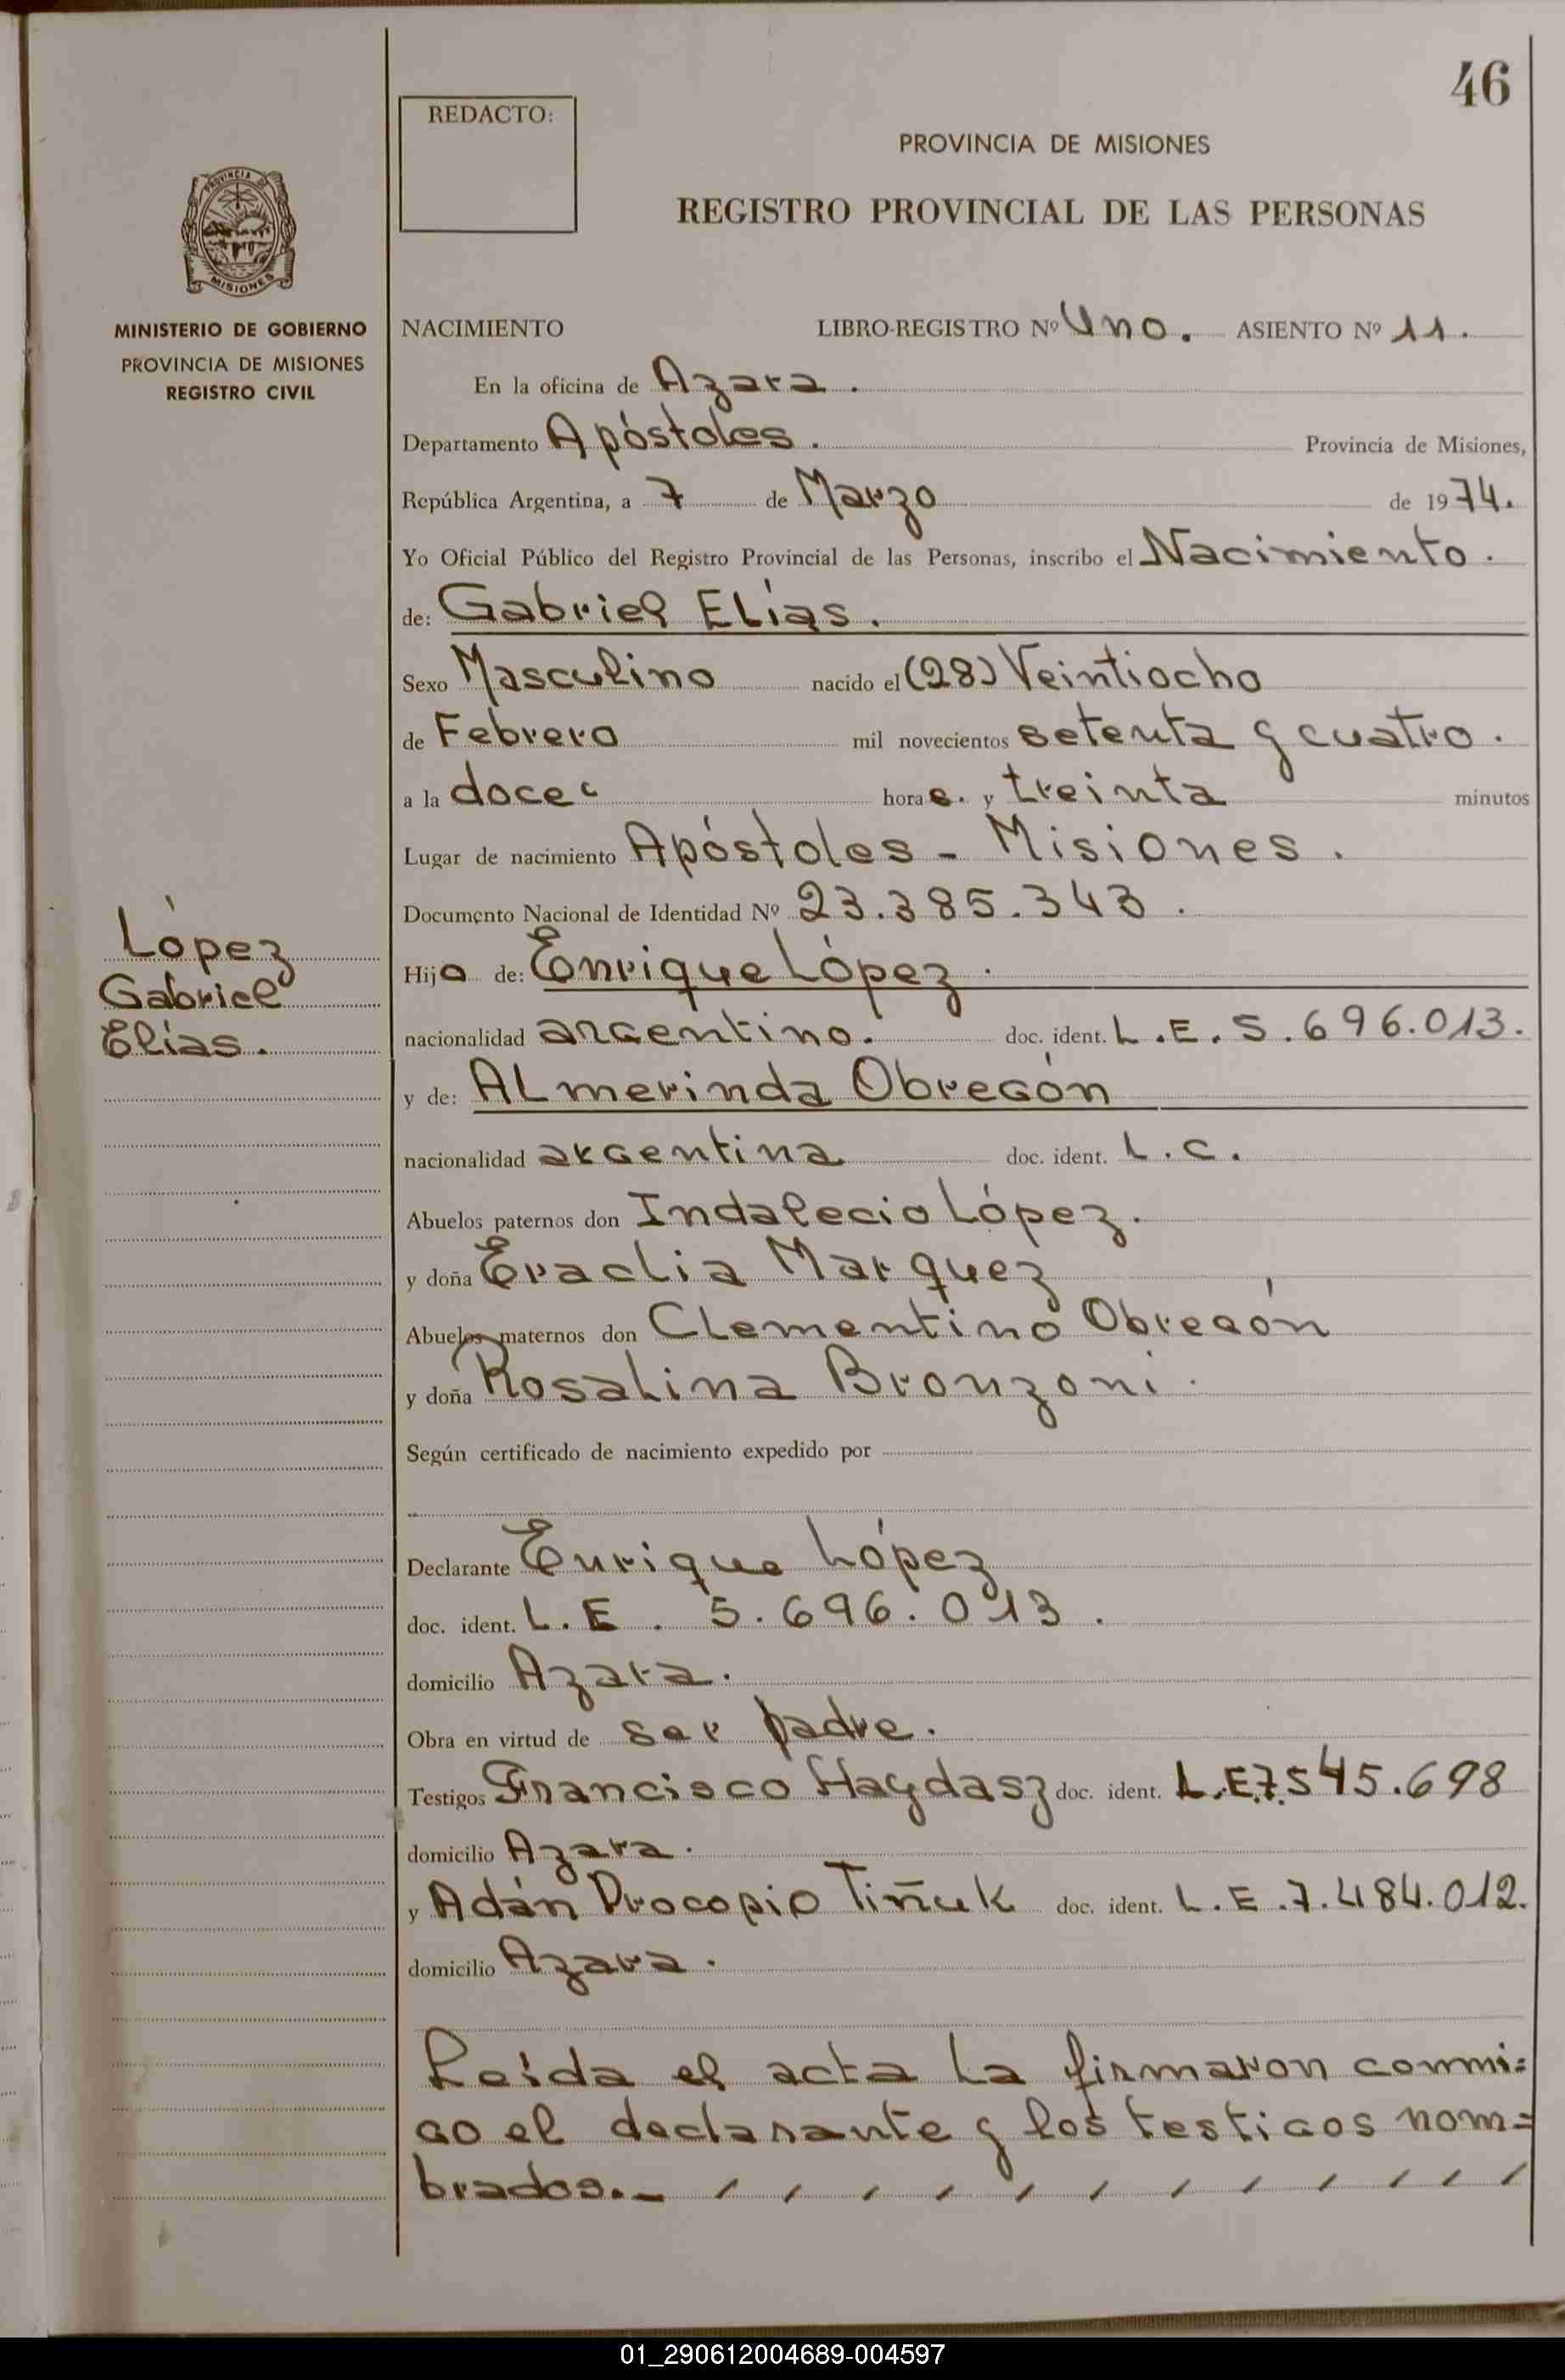 46
REDACTO:
PROVINCIA DE MISIONES
REGISTRO PROVINCIAL DE LAS PERSONAS
PROVINCIA DE
MISIONES
MINISTERIO DE GOBIERNO
PROVINCIA DE MISIONES
REGISTRO CIVIL
NACIMIENTO LIBRO-REGISTRO Nº Uno. ASIENTO Nº 11.
En la oficina de Azara.
Departamento Apóstoles. Provincia de Misiones,
República Argentina, a 7 de Marzo de 1974.
Yo Oficial Público del Registro Provincial de las Personas, inscribo el Nacimiento.
de: Gabriel Elías.
Sexo Masculino nacido el (28) Veintiocho
de Febrero mil novecientos setenta y cuatro.
a la doce horas. y treinta minutos
Lugar de nacimiento Apóstoles - Misiones.
Documento Nacional de Identidad Nº 23.385.343.
López
Gabriel
Elías.
Hijo de: Enrique López.
nacionalidad argentino. doc. ident. L.E. 5.696.013.
y de: Almerinda Obregón
nacionalidad argentina doc. ident. L.C.
Abuelos paternos don Indalecio López.
y doña Eraclia Marquez
Abuelos maternos don Clementino Obregón
y doña Rosalina Bronzoni.
Según certificado de nacimiento expedido por
Declarante Enrique López
doc. ident. L.E. 5.696.013.
domicilio Azara.
Obra en virtud de ser padre.
Testigos Francisco Haydasz doc. ident. L.E.7.545.698
domicilio Azara.
y Adán Procopio Tiñuk doc. ident. L.E.7.484.012.
domicilio Azara.
Leída el acta la firmaron conmi=
go el declarante y los testigos nom=
brados.-
01_290612004689-004597